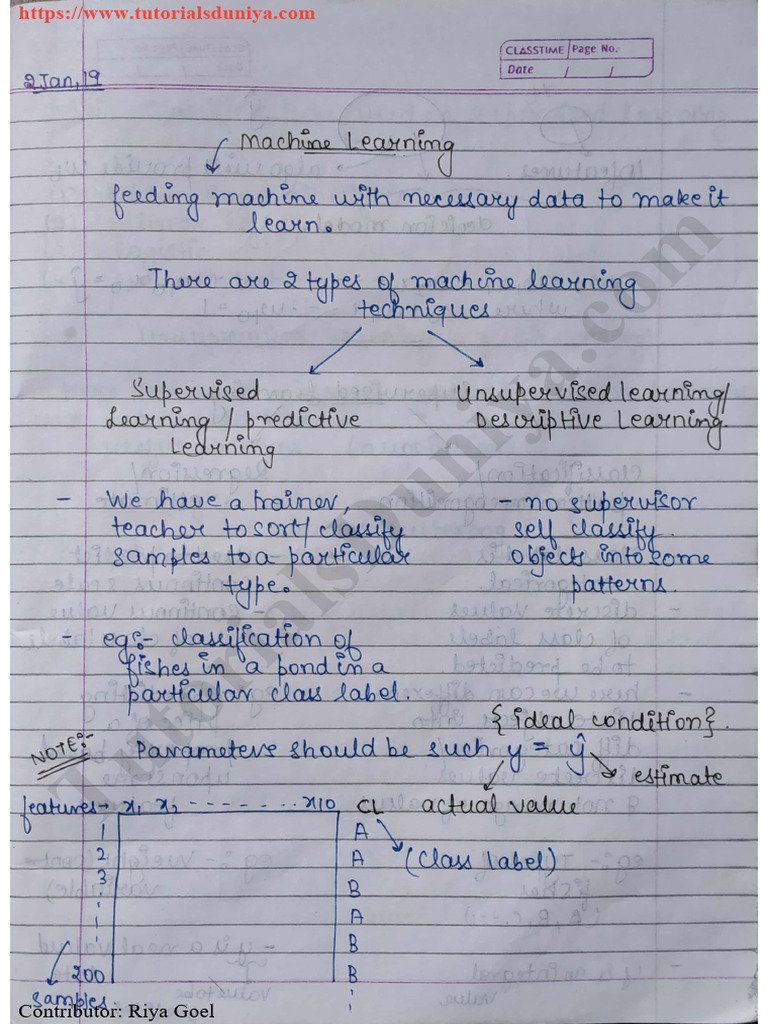 https://www.tutorialsduniya.com
CLASSTIME Page No.
Date / /
2 Jan, 19
Machine Learning
feeding machine with necessary data to make it
learn.
There are 2 types of machine learning
techniques
Supervised
Learning / predictive
Learning
Unsupervised learning/
Descriptive Learning.
- We have a trainer,
teacher to sort/ classify
samples to a particular
type.
- no supervisor
self classify
objects into some
patterns.
- eg:- classification of
fishes in a pond in a
particular class label.
{ideal condition}.
NOTE:- Parameters should be such y = ŷ
estimate
actual value
features→ x1 x2 - - - - - - - x10 CL
(class label)
1 A
2 A
3 B
A
B
200 B
samples
TutorialsDuniya.com
Contributor: Riya Goel